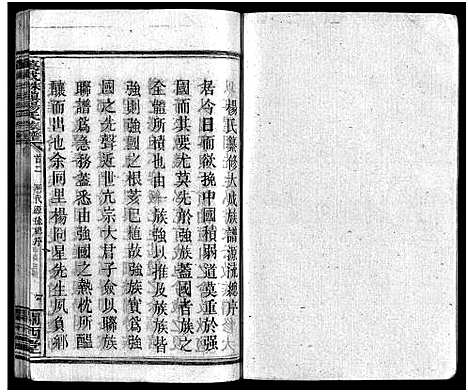 楊氏纂修大成族譜源流總序
居今日而欲挽中國積弱道莫重於強
國而其要尤莫先於強族蓋國者族之
全體所積也由一族強以推及族族皆
強則強國之根荄已植故強族實爲強
國之先聲近世亢宗大君子僉以聯族
聯譜爲急務蓋悉由強國之熱忱所醞
釀而出也余同里楊向星先生夙負鄉
首一